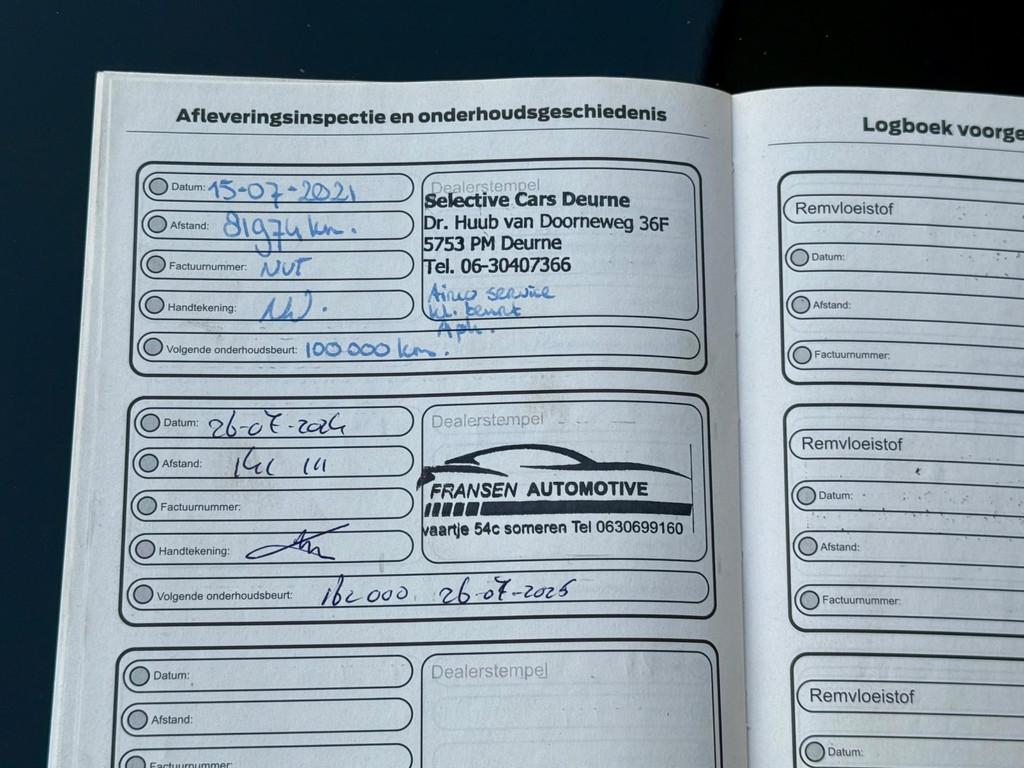 Afleveringsinspectie en onderhoudsgeschiedenis
Datum: 15-07-2021
Afstand: 81974 km.
Factuurnummer: NVT
Handtekening:
Volgende onderhoudsbeurt: 100 000 km.
Dealerstempel
Selective Cars Deurne
Dr. Huub van Doorneweg 36F
5753 PM Deurne
Tel. 06-30407366
Airco service
kl. beurt
Apk.
Datum: 26-07-2024
Afstand:
Factuurnummer:
Handtekening:
Volgende onderhoudsbeurt: 162000 26-07-2025
Dealerstempel
FRANSEN AUTOMOTIVE
vaartje 54c someren Tel 0630699160
Datum:
Afstand:
Factuurnummer:
Dealerstempel
Logboek voorge
Remvloeistof
Datum:
Afstand:
Factuurnummer:
Remvloeistof
Datum:
Afstand:
Factuurnummer:
Remvloeistof
Datum: